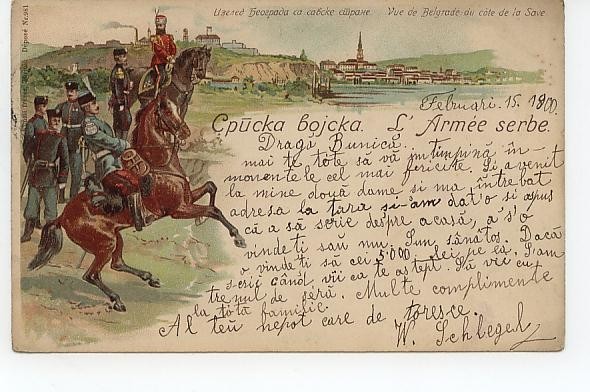 Изглед Београда са савске стране. Vue de Belgrade du côte de la Save
Februari. 15. 1900.
Српска војска. L' Armée serbe.
Draga Bunică.
mai te, tóte să vă intimpină in-
momentele cel mai fericite. Si a venit
la mine două dame si ma intrebat
adresa la tara si-am dat'o si a spus
că a să scrie despre acasă, a s'o
vinde ti sau nu. Sunt sănătos. Dacă
o vinde ti să cei 5.000 lei pe ea. S'am
scrie când vii ca te astept. Să vii cu
trenul de seră. Multe complimente
la totă familie.
Al teŭ nepot care de toresce.
W. Schlegel
Déposé No 981